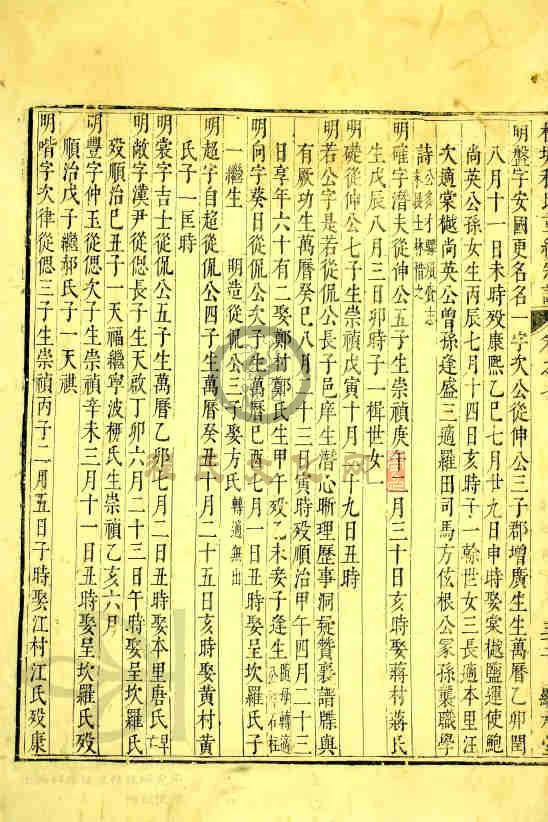 明盤字安國更名名一字次公從伸公三子郡增廣生生萬曆乙卯閏
八月十一日未時歿康熙乙巳七月廿九日申時娶棠樾鹽運使鮑
尚英公孫女生丙辰七月十四日亥時子一翰世女三長適本里汪
次適棠樾尚英公曾孫逢盛三適羅田司馬方伭根公冢孫襲職學
詩
明確字潛夫從伸公五子生崇禎庚午二月三十日亥時娶蔣村蔣氏
生戊辰八月三日卯時子一楫世女
明礎從伸公七子生崇禎戊寅十月二十九日丑時
明若公字是若從侃公長子邑庠生潛心晰理歷事洞疑贊襄譜牒與
有厥功生萬曆癸巳八月二十三日寅時歿順治甲午四月二十三
日享年六十有二娶鄭村鄭氏生甲午歿乙未妾子逢生隨母轉適
明向字葵日從侃公次子生萬曆己酉七月一日丑時娶呈坎羅氏子
一繼生 明造從侃公三子娶方氏轉適無出
明超字自超從侃公四子生萬曆癸丑十月二十五日亥時娶黃村黃
氏子一匡時
明裳字吉士從侃公五子生萬曆乙卯七月二日丑時娶本里唐氏
明敞字漢尹從偲長子生天啟丁卯六月二十三日午時娶呈坎羅氏
歿順治己丑子一天福繼寧波柳氏生崇禎乙亥六月
明豐字仲玉從偲次子生崇禎辛未三月十一日丑時娶呈坎羅氏歿
順治戊子繼郝氏子一天祺
明喈字次律從偲三子生崇禎丙子二月五日子時娶江村江氏歿康